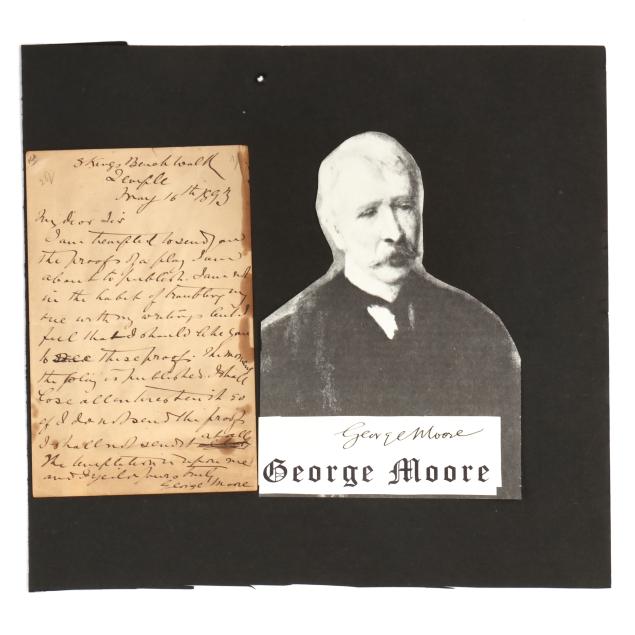 3 Kings Bench Walk
Temple
May 16th 1893
My dear Sir
I am tempted to send you
the proofs of a play I am
about to publish. I am not
in the habit of troubling any
one with my writings but I
feel that I should like you
to see these proofs. The moment
the play is published I shall
lose all interest in it so
if I do not send the proofs
I shall not send it at all
The temptation is upon me
and I yield yours truly
George Moore
George Moore
George Moore